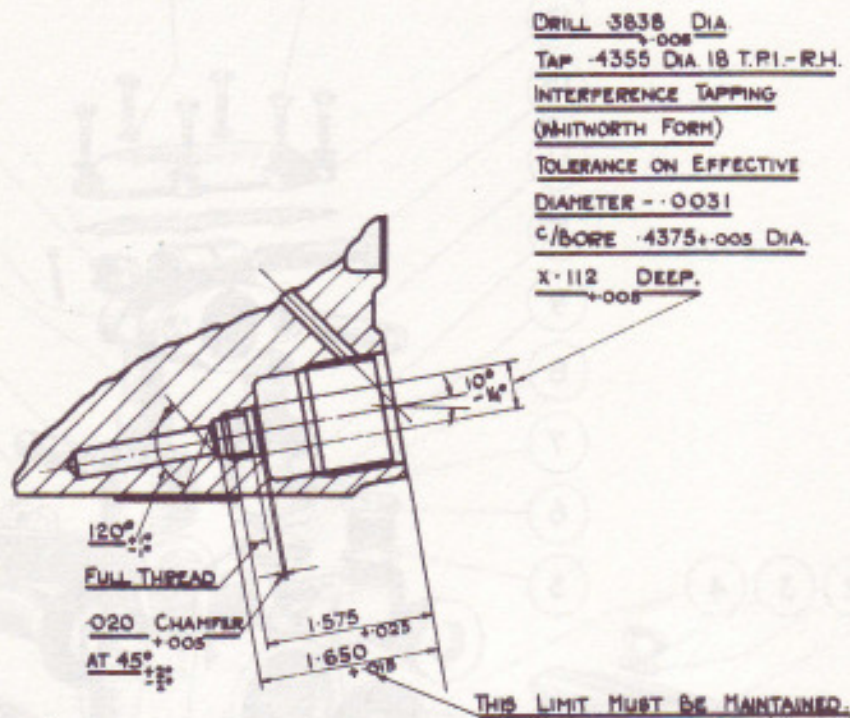 DRILL .3838 DIA.
+.005
TAP .4355 DIA. 18 T.P.I.-R.H.
INTERFERENCE TAPPING
(WHITWORTH FORM)
TOLERANCE ON EFFECTIVE
DIAMETER -.0031
C/BORE .4375+.005 DIA.
X.112 DEEP.
+.005
10°
-¼°
120°
+1°
-1°
FULL THREAD
.020 CHAMFER
+.005
AT 45°
+2°
-2°
1.575
+.025
1.650
+.015
THIS LIMIT MUST BE MAINTAINED.
7
6
5
2
3
4